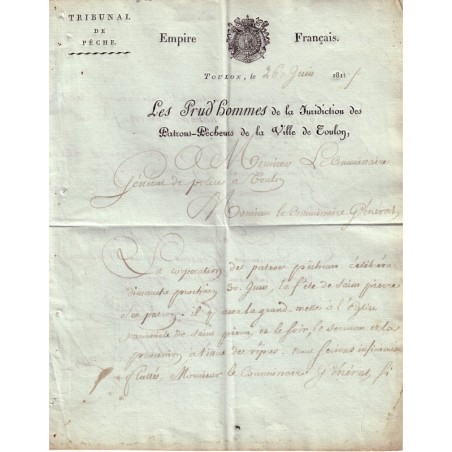 TRIBUNAL
DE
PÊCHE.
Empire Français.
TOULON, le 26 Juin 181
Les Prud'hommes de la Juridiction des
Patrons-Pêcheurs de la Ville de Toulon,
A Monsieur Le Commissaire
Général de police à Toulon
Monsieur le Commissaire Général,
La corporation des patrons pêcheurs célébrera
dimanche prochain 30 Juin, la fête de Saint pierre
Son patron; il y aura la grand messe à l'Eglise
de Saint pierre, et le soir, le sermon et la
procession à l'issue des vêpres. nous serions infiniment
flattés, Monsieur le Commissaire Général, si